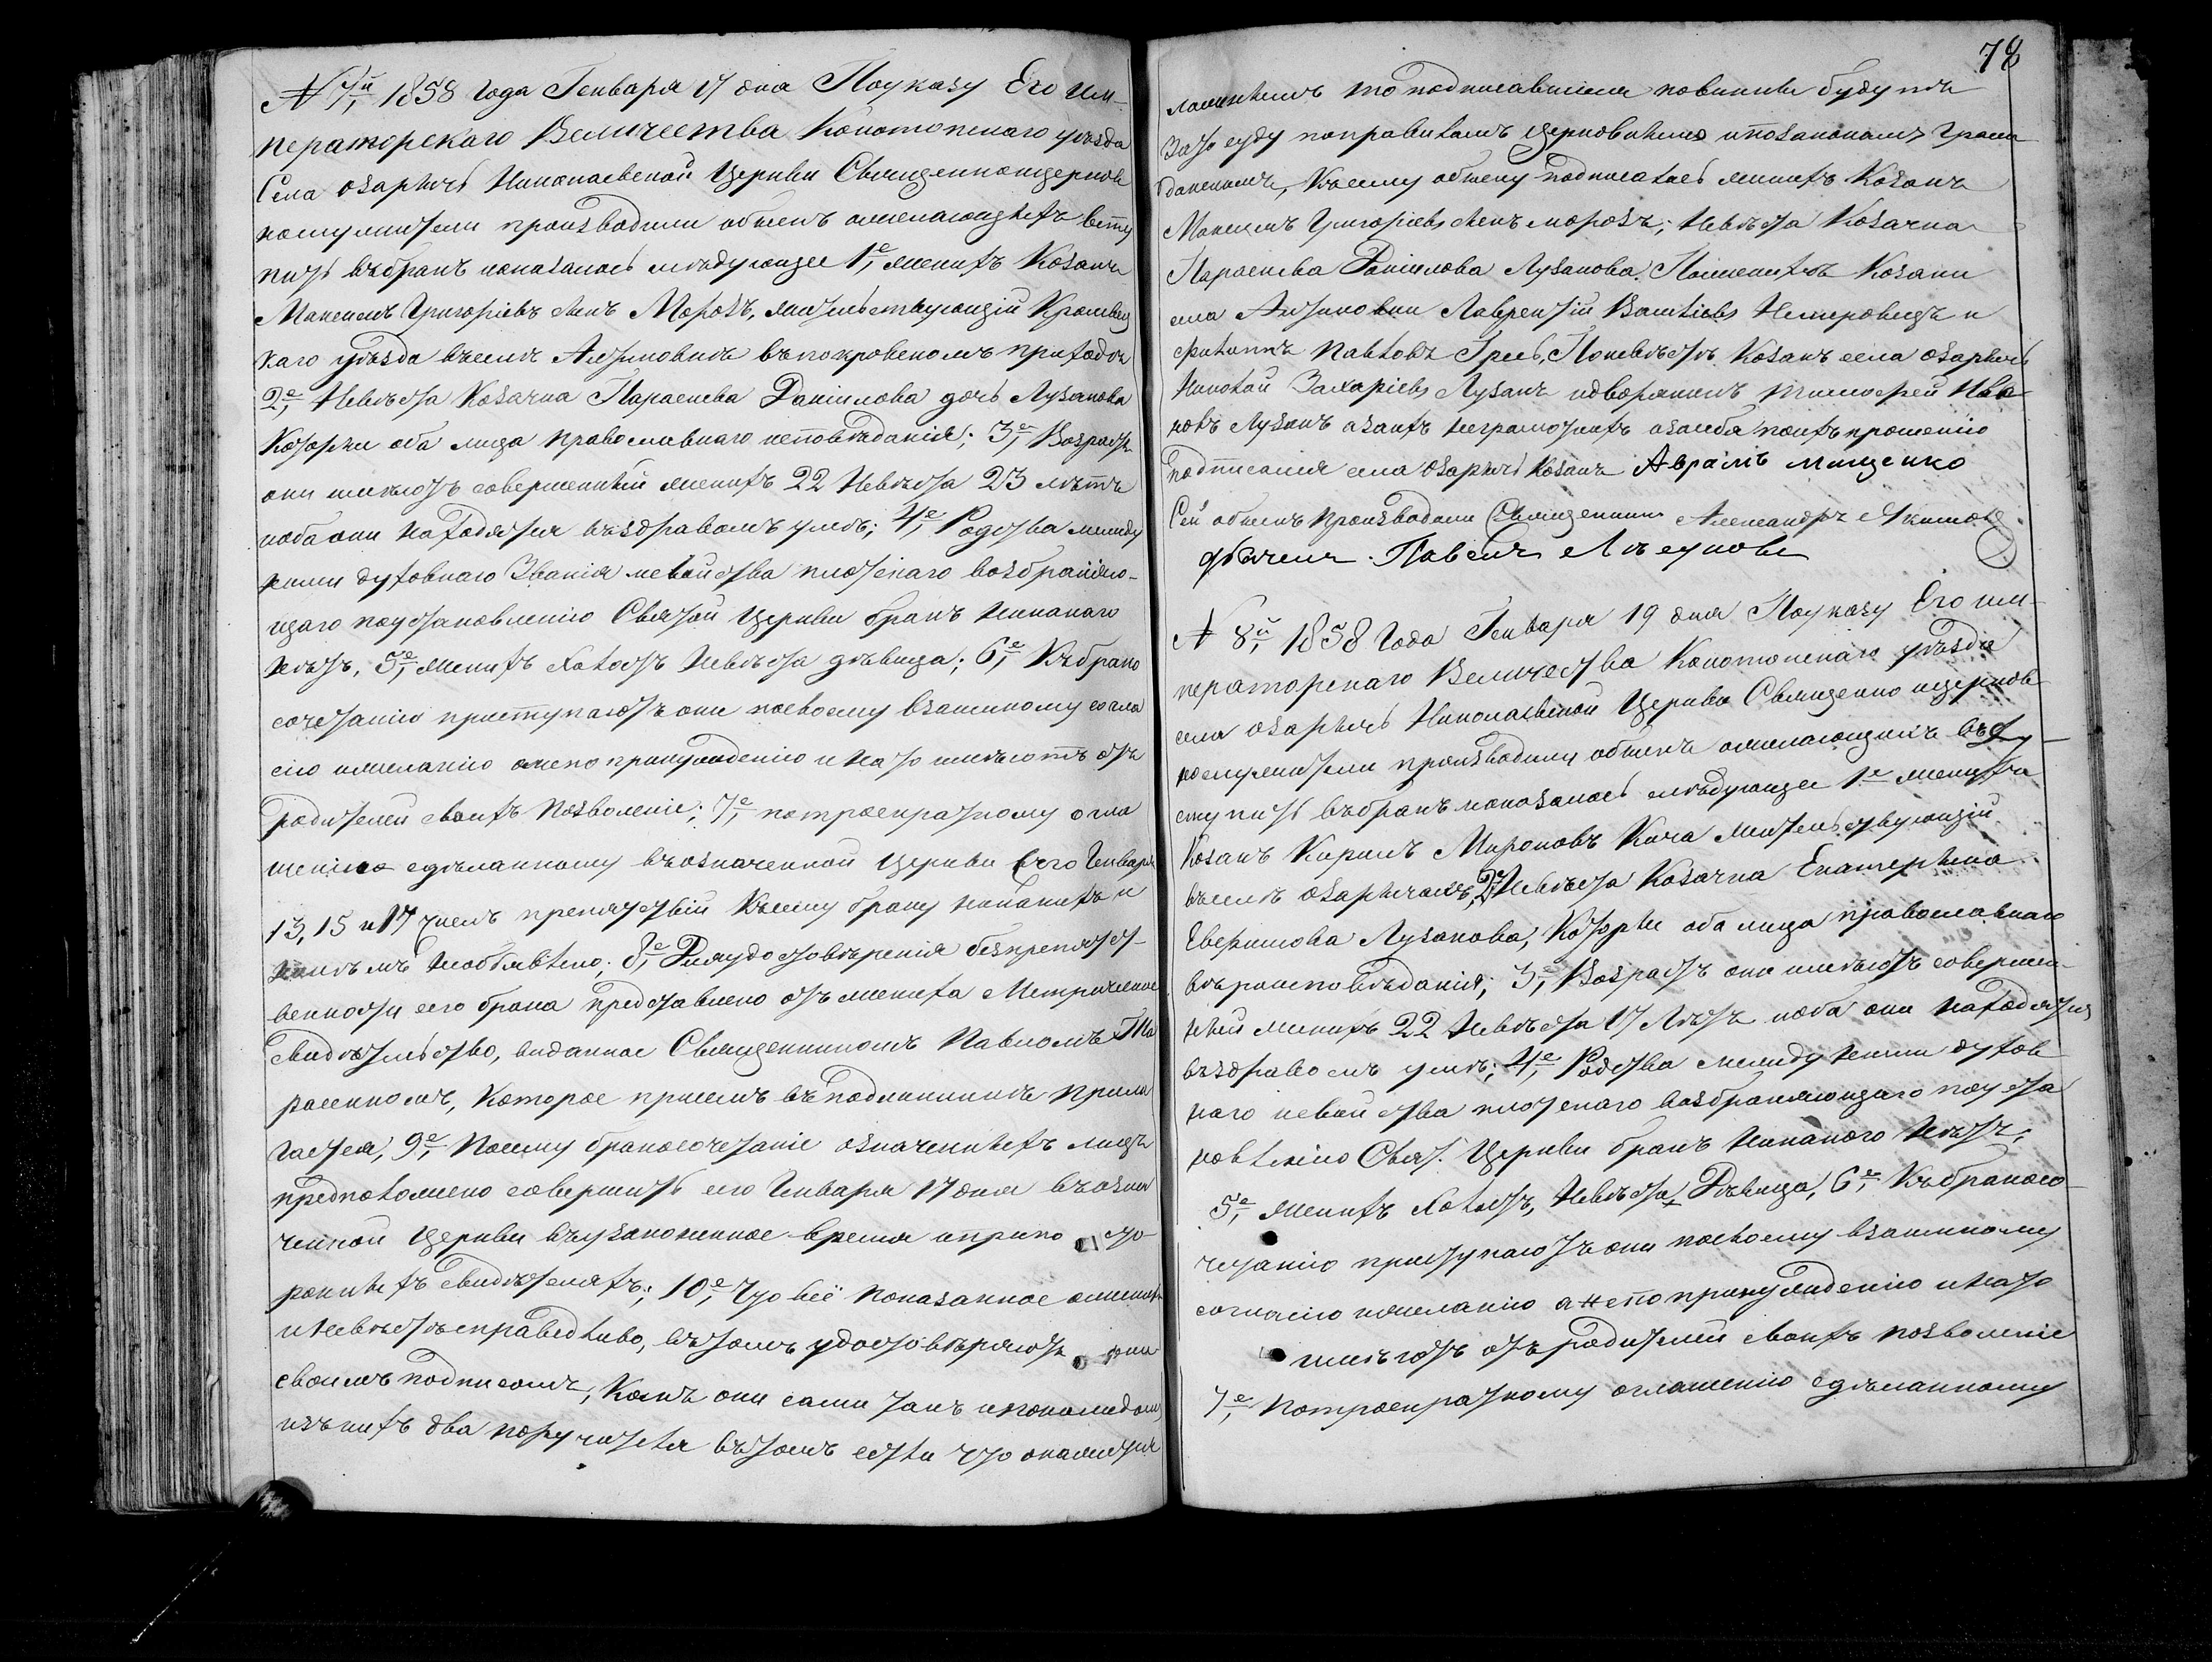 N 7й, 1858 Года Генваря 17 дня По указу Его Им-
ператорскаго Величества Конотопскаго уѣзда
Села Озаричъ Николаевской Церкви Священноцерков
нослужители производили обыскъ о желающихъ всту
пить въ бракъ и оказалось слѣдующее 1е, женихъ Козакъ
Максимъ Григоріевъ сынъ Морозъ, жительствующій Кролевец
каго уѣзда въ селѣ въ покровскомъ приходѣ
2е, Невѣста Козачка Параскева Даніилова дочь Лузанова
Которые оба лица православнаго исповѣданія; 3е, Возрастъ
они имѣютъ совершенный женихъ 22 Невѣста 23 лѣтъ
и оба они находятся въ здравомъ умѣ; 4е, Родства между
ними духовнаго Званія и свойства плотскаго возбраняю-
щаго по установленію Святой Церкви бракъ никакого
нѣтъ, 5е, женихъ холостъ невѣста дѣвица; 6е, Къ брако
сочетанію приступаютъ они по своему взаимному согла
сію и желанію а не по принужденію и на то имѣютъ отъ
родителей своихъ позволеніе; 7е, по троекратному огла
шенію сдѣланному въ означенной Церкви сего Генваря
13, 15 и 17 чиселъ препятствій къ сему браку никакихъ и
никѣмъ необъявлено; 8е, Для удостовѣренія безпрепятст-
венности сего брака представлено отъ жениха Метрическое
Свидѣтельство, виданное Священникомъ Павломъ Та
расенкомъ, которое присемъ въ подлинникѣ прила
гается, 9е, Посему бракосочетаніе означенныхъ лицъ
предположено совершить сего Генваря 17 дня въ озна
ченной Церкви въ узаконенное время и при по сто-
роннихъ свидѣтеляхъ; 10е, Что всё показанное о женихѣ
и невѣстѣ справедливо, въ томъ удостовѣряютъ
своимъ подписомъ, Какъ они сами такъ и по каждомъ
изъ нихъ два поручителя въ томъ если что окажется
78
ложнымъ то подписавшіеся повинны будутъ
За то суду по правиламъ Церковнымъ и по законамъ Граж
данскимъ, Къ сему обыску подписались женихъ Козакъ
Максимъ Григоріевъ сынъ морозъ; Невѣста Козачка
Параскева Даніилова Лузанова. По женихѣ Козаки
села Лаврентій Василіевъ Немировецъ и
Филиппъ Павловъ Гресь, По невѣстѣ Козакъ села Озаричъ
Николай Захаріевъ Лузанъ и дворянинъ Тимофей Ива-
новъ Лузанъ а за нихъ неграмотнихъ а за себя по ихъ прошенію
подписался села Озаричъ Козакъ Аврамъ Мищенко
Сей обыскъ производили Священникъ Александръ
дьячекъ Павелъ
N 8й, 1858 Года Генваря 19 дня По указу Его Им-
ператорскаго Величества Конотопскаго уѣзда
села Озаричъ Николаевской Церкви Священно и церков
нослужители производили обыскъ о желающихъ въ
ступить въ бракъ и оказалось слѣдующее 1е, женихъ
Козакъ Кирилъ Мироновъ Кича жительствующій
въ селѣ Озаричахъ, 2е, Невѣста Козачка Екатерина
Евфимова Лузанова, Которые оба лица православнаго
вѣроисповѣданія; 3е, Возрастъ они имѣютъ совершен-
ный женихъ 22 Невѣста 17 Лѣтъ и оба они находятся
въ здравомъ умѣ; 4е, Родства между ними духов
наго и свойства плотскаго возбраняющаго по уста
новленію Свят. Церкви бракъ никакого нѣтъ;
5е, женихъ холостъ, Невѣста Дѣвица, 6е, Къ бракосо-
четанію приступаютъ они по своему взаимному
согласію и желанію а не по принужденію и на то
имѣютъ отъ родителей своихъ позволеніе
7е, По троекратному оглашенію сдѣланному